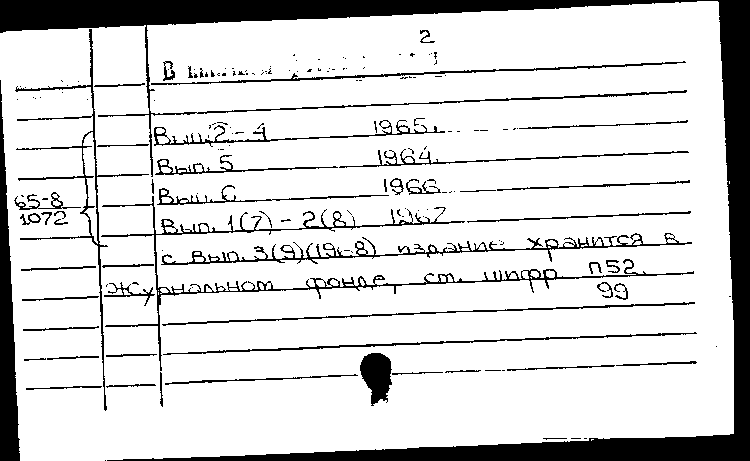 2
В
Вып. 2-4 1965.
Вып. 5 1964.
Вып. 6 1966
65-8
1072
Вып. 1(7) - 2(8) 1967
с вып. 3(9)(1968) издание хранится в
журнальном фонде, см. шифр П52.
99